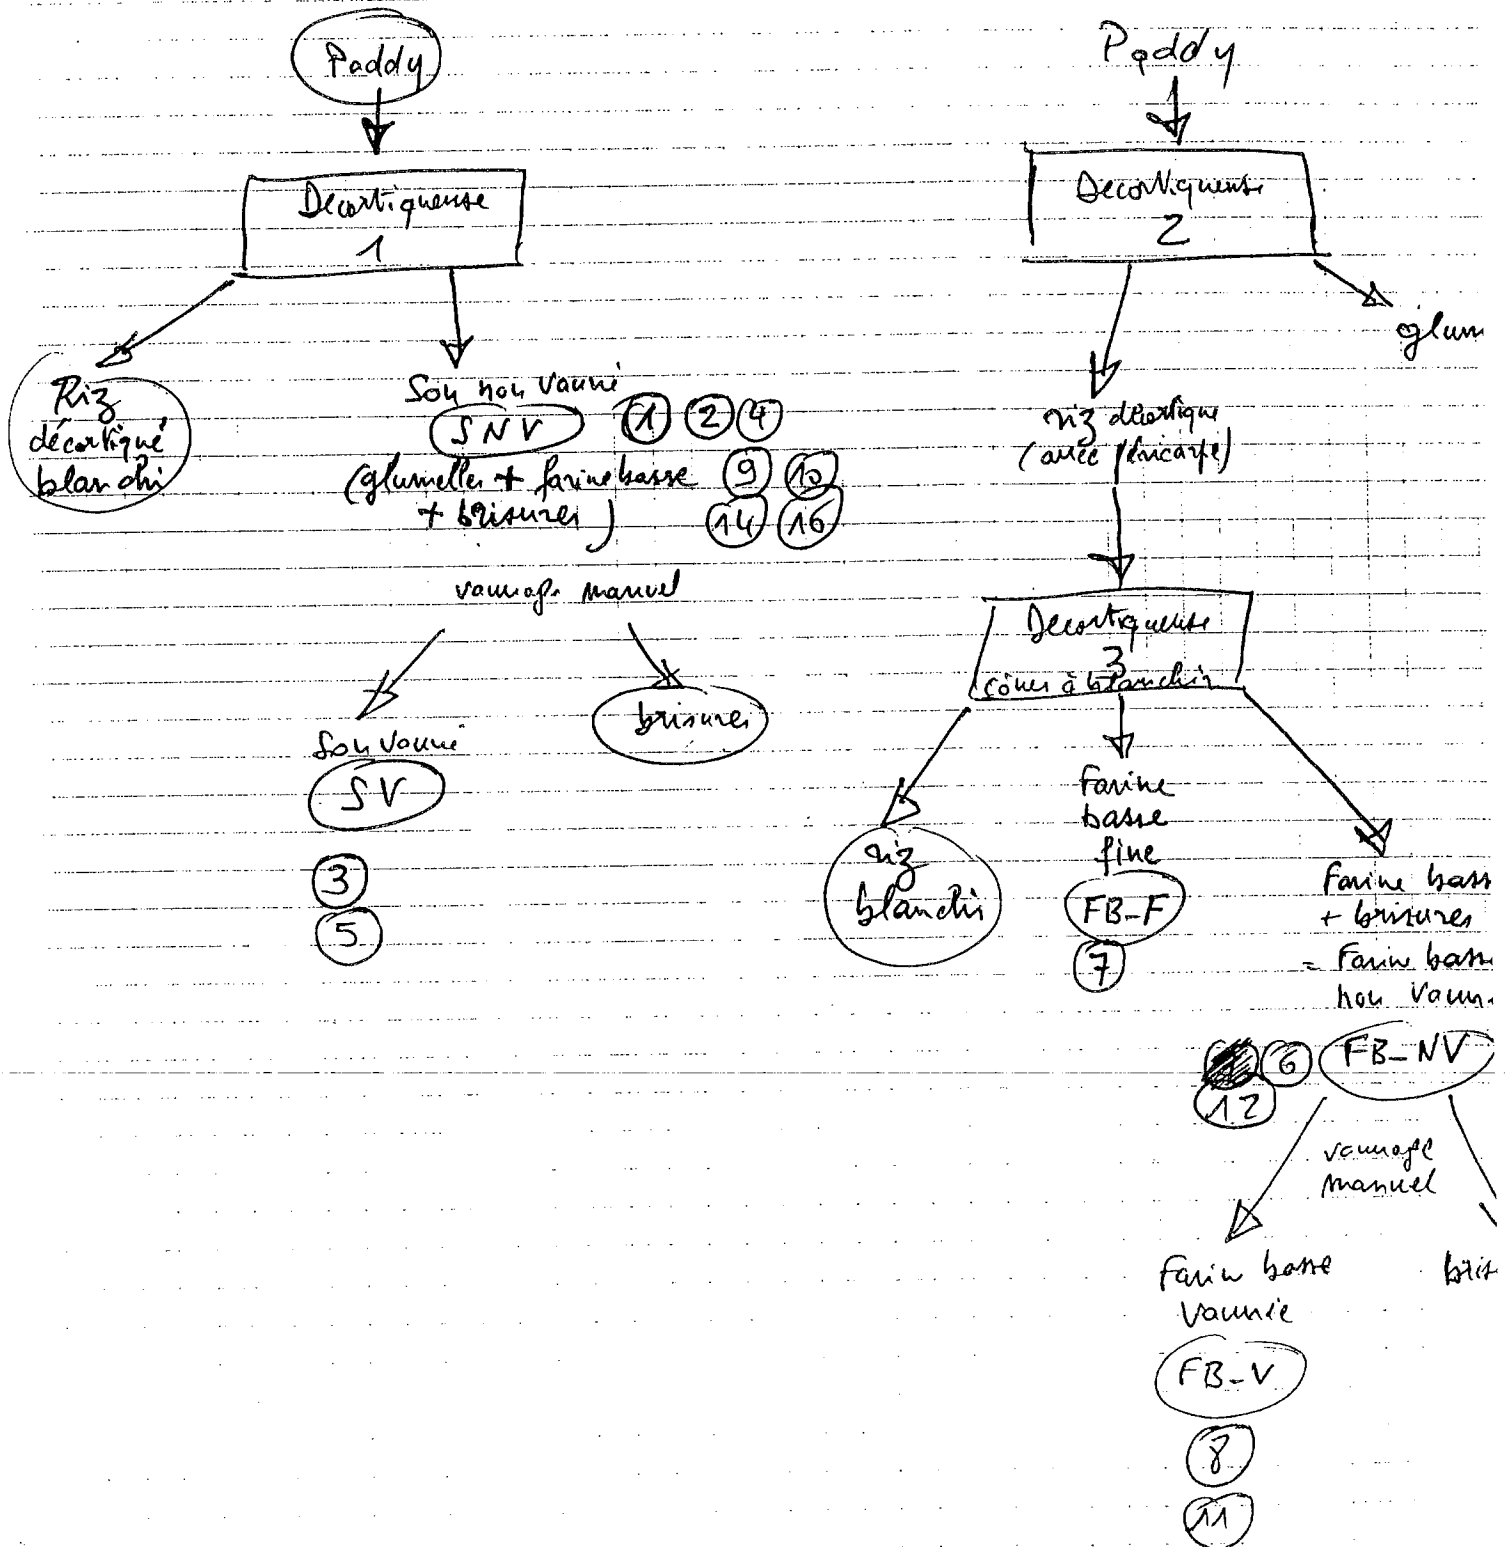 Paddy
Decortiqueuse
1
Riz
décortiqué
blanchi
Son non vanné
SNV 1 2 4
(glumelles + farine basse 9 10
+ brisures) 14 16
vannage manuel
Son vanné
SV
3
5
brisures
Paddy
Decortiqueuse
2
glum
riz décortiqué
(avec péricarpe)
Decortiqueuse
3
cônes à blanchir
riz
blanchi
Farine
basse
fine
FB-F
7
Farine bass
+ brisures
= Farine bass
non vann
6 FB-NV
12
vannage
manuel
Farine basse
vannée
FB-V
8
11
bris